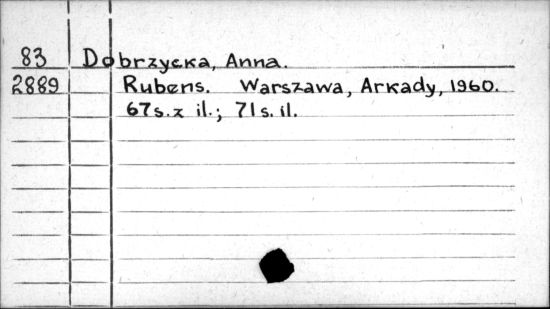 83 Dobrzycka, Anna.
2889 Rubens. Warszawa, Arkady, 1960.
67s.z il.; 71s.il.